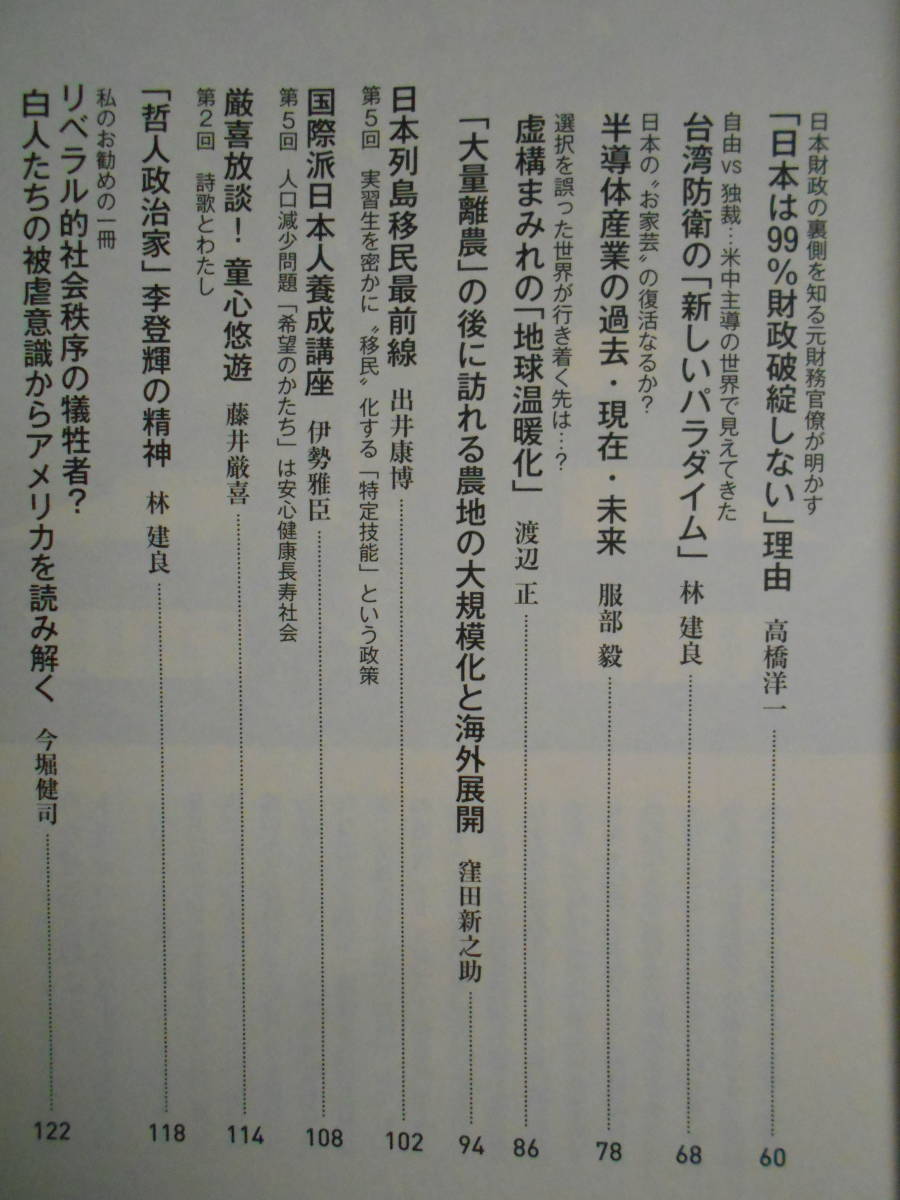 日本財政の裏側を知る元財務官僚が明かす
「日本は99%財政破綻しない」理由　高橋洋一 60
自由 vs 独裁…米中主導の世界で見えてきた
台湾防衛の「新しいパラダイム」　林 建良 68
日本の〝お家芸〟の復活なるか？
半導体産業の過去・現在・未来　服部 毅 78
選択を誤った世界が行き着く先は…？
虚構まみれの「地球温暖化」　渡辺 正 86
「大量離農」の後に訪れる農地の大規模化と海外展開　窪田新之助 94
日本列島移民最前線　出井康博 102
第５回　実習生を密かに〝移民〟化する「特定技能」という政策
国際派日本人養成講座　伊勢雅臣 108
第５回　人口減少問題「希望のかたち」は安心健康長寿社会
厳喜放談！ 童心悠遊　藤井厳喜 114
第２回　詩歌とわたし
「哲人政治家」李登輝の精神　林 建良 118
私のお勧めの一冊
リベラル的社会秩序の犠牲者？
白人たちの被虐意識からアメリカを読み解く　今堀健司 122